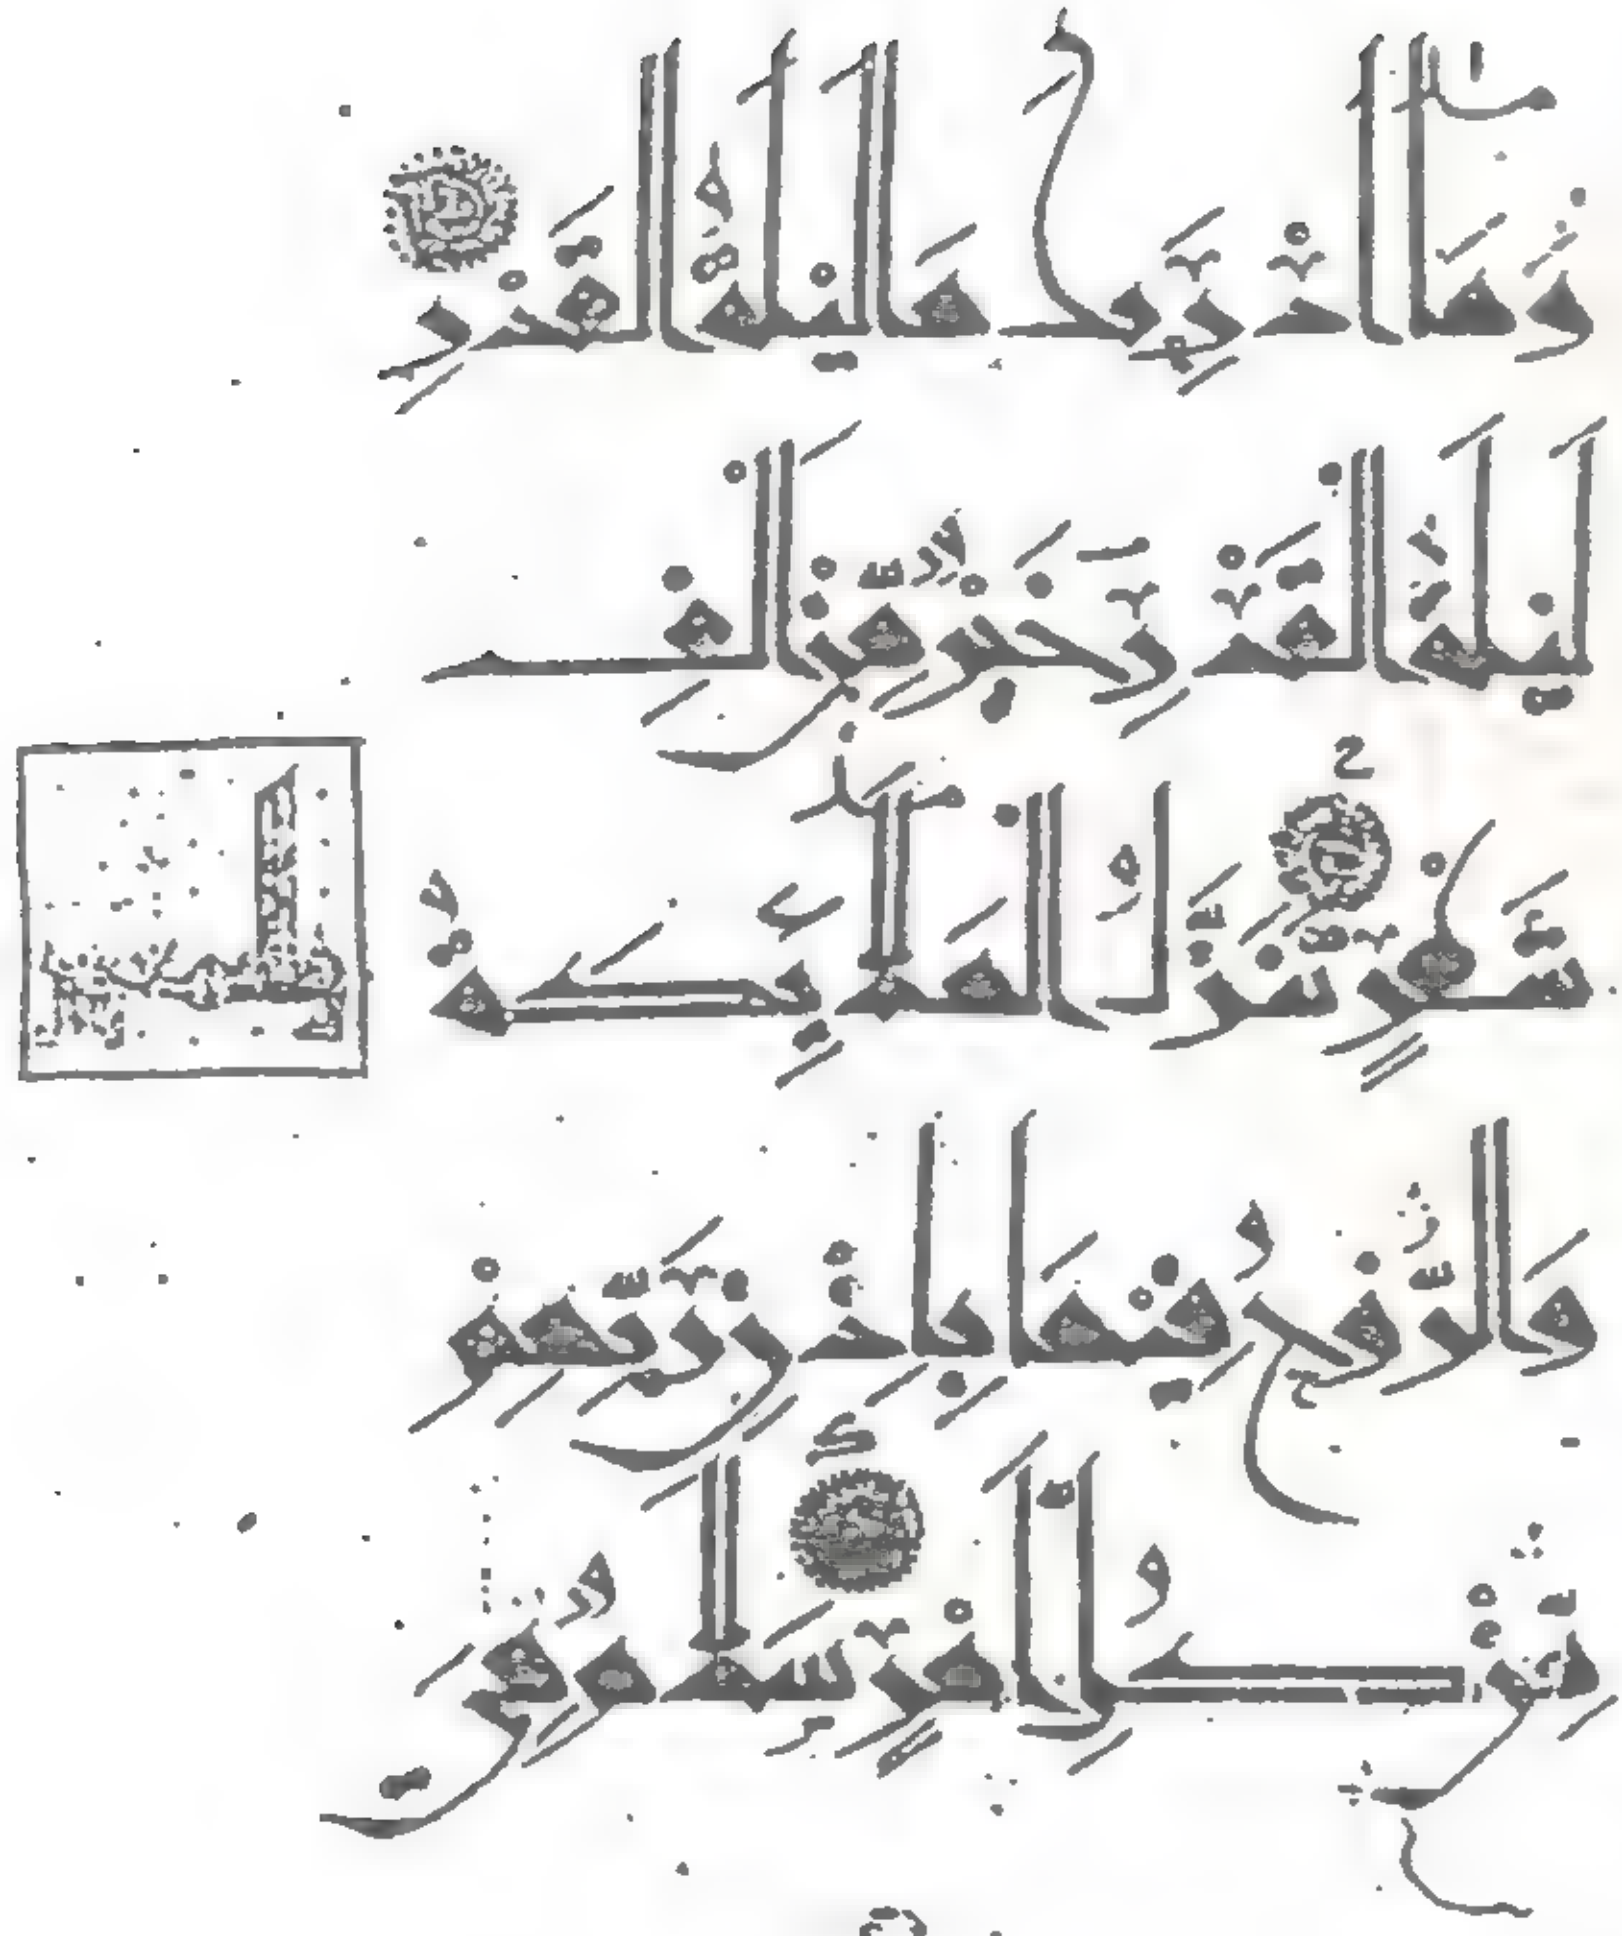 وَمَا أَدْرَىٰكَ مَا لَيْلَةُ الْقَدْرِ
لَيْلَةُ الْقَدْرِ خَيْرٌ مِّنْ أَلْفِ
شَهْرٍ تَنَزَّلُ الْمَلَٰٓئِكَةُ
وَالرُّوحُ فِيهَا بِإِذْنِ رَبِّهِمْ
مِّنْ كُلِّ أَمْرٍ سَلَٰمٌ هِيَ